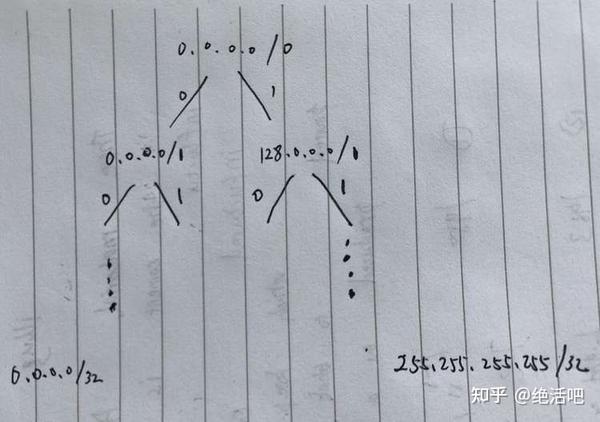 0.0.0.0/0
0 1
0.0.0.0/1 128.0.0.0/1
0 1 0 1
0.0.0.0/32 255.255.255.255/32
知乎 @绝活吧